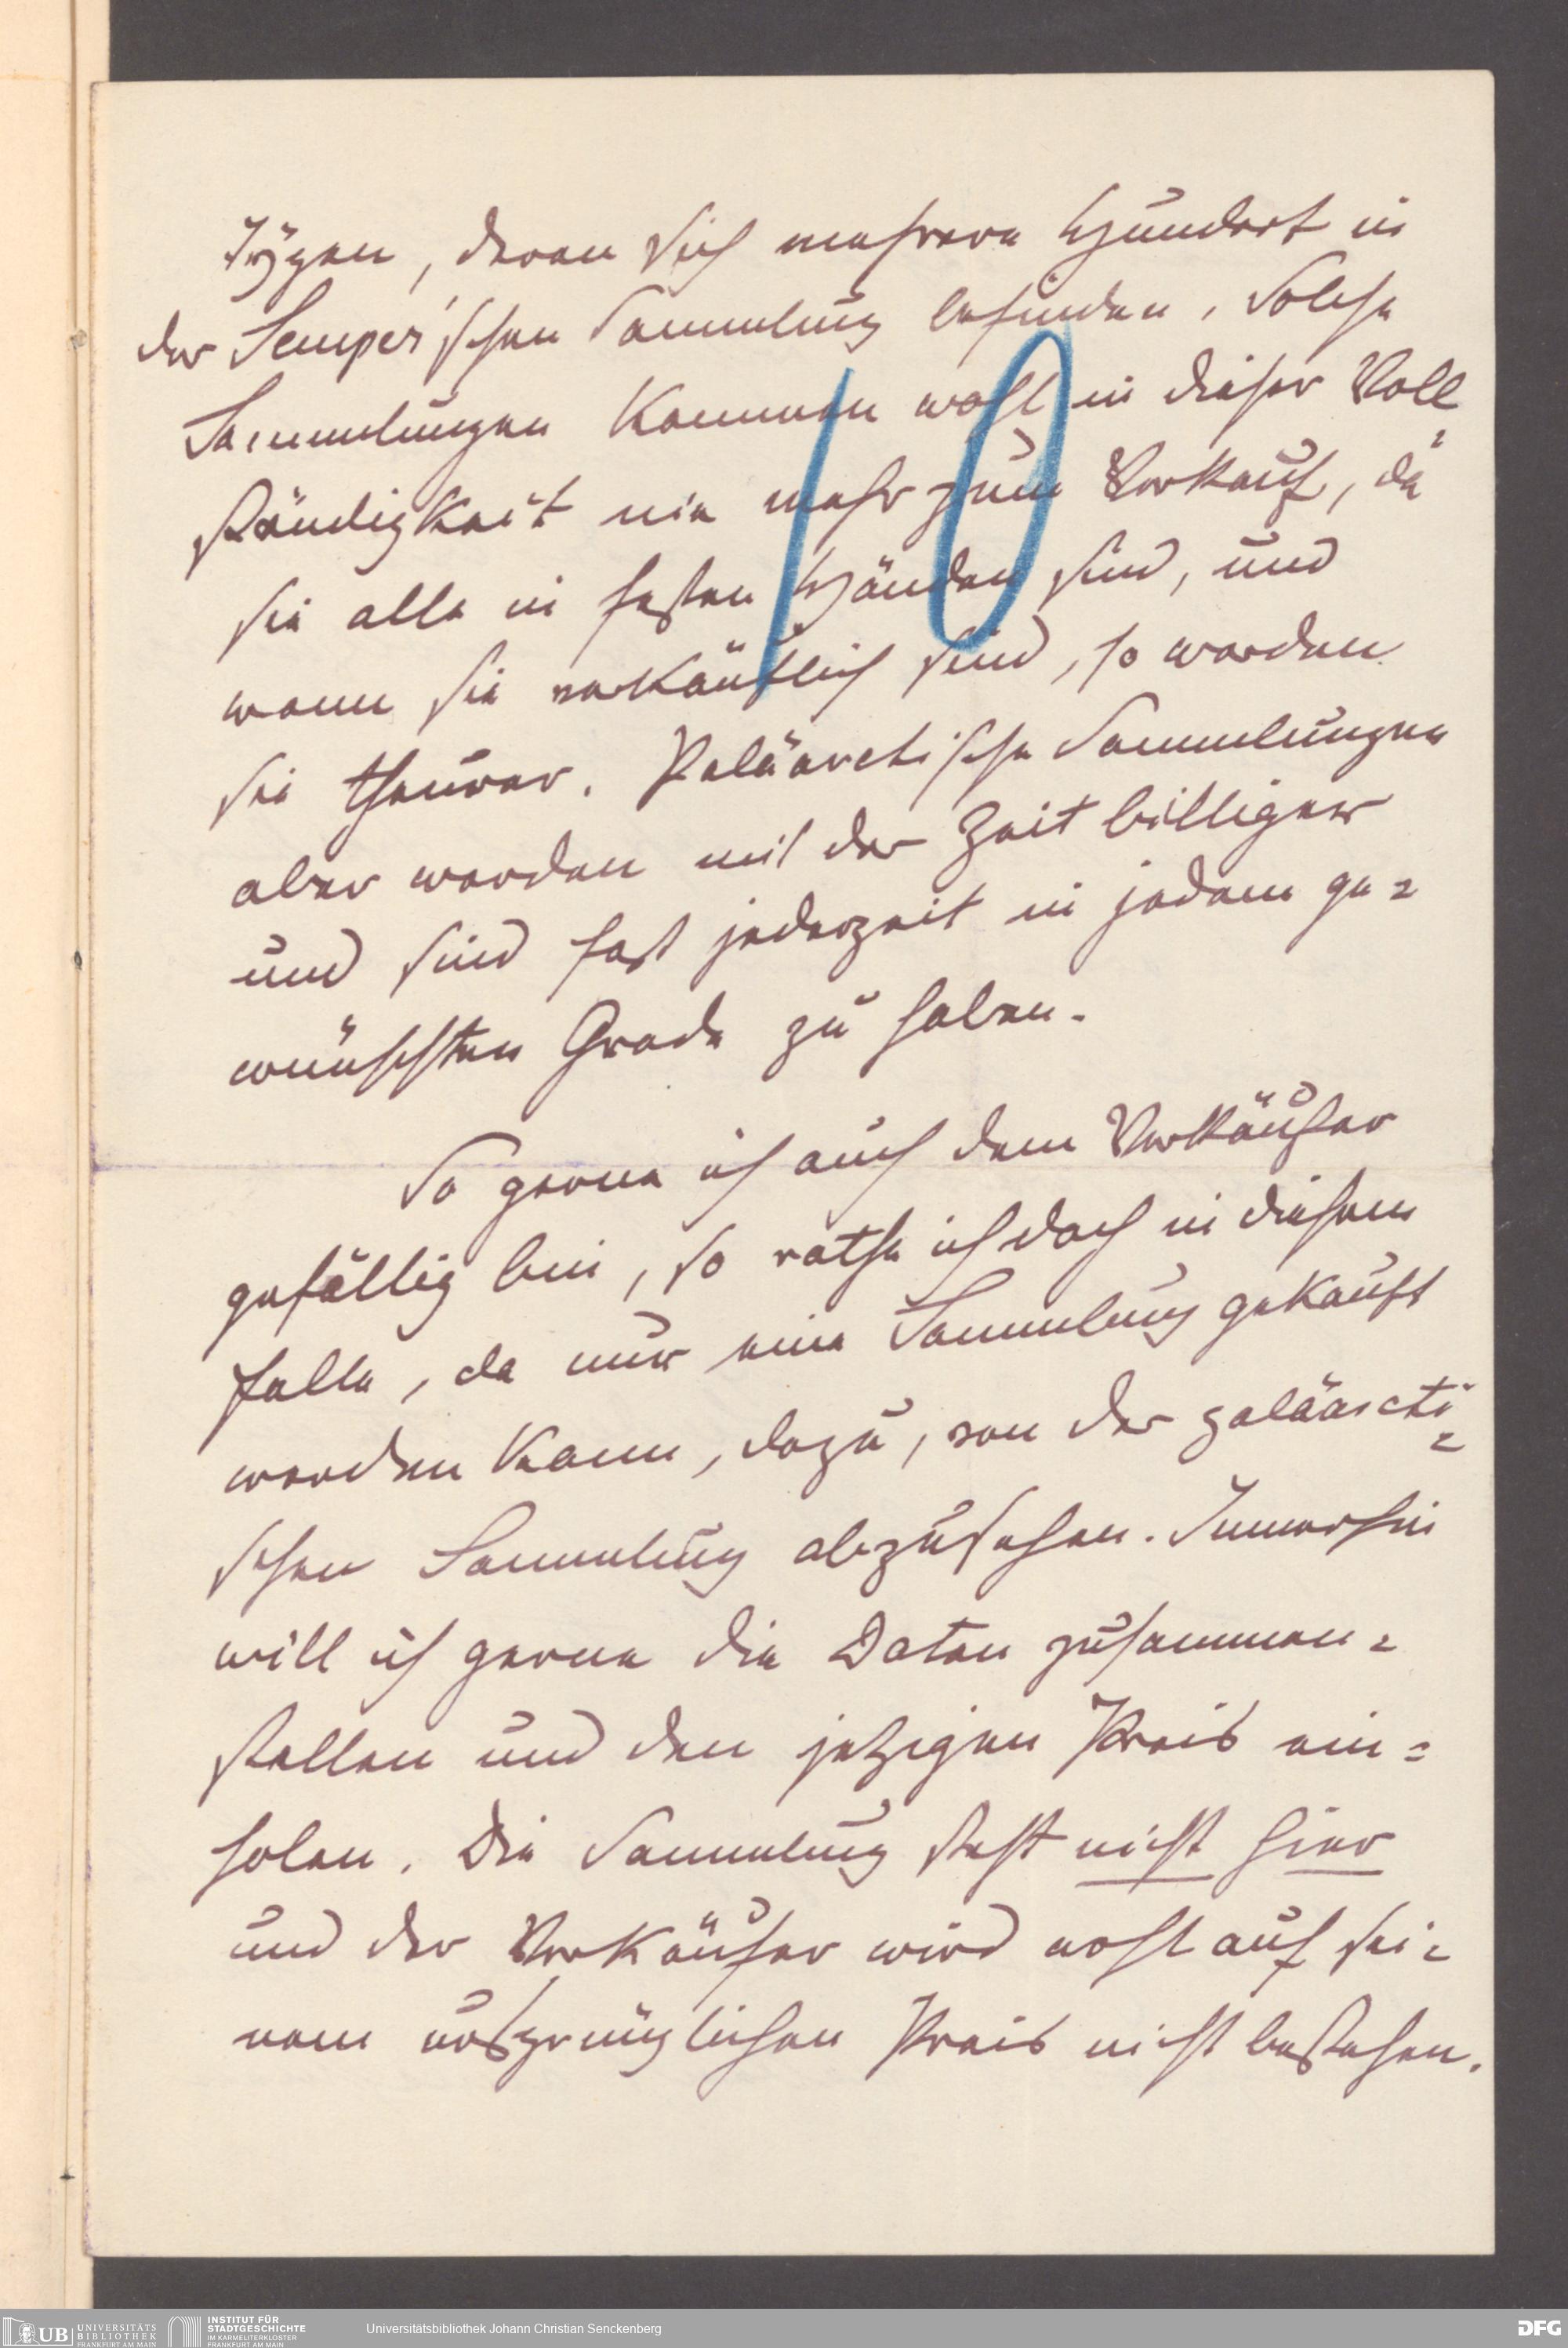 Typen, deren sich mehrere Hundert in
der Semper'schen Sammlung befinden. Solche
Sammlungen kommen wohl in dieser Voll-
ständigkeit nie mehr zum Verkauf, da
sie alle in festen Händen sind, und
wenn sie verkäuflich sind, so werden
sie theurer. Paläarctische Sammlungen
aber werden mit der Zeit billiger
und sind fast jederzeit in jedem ge-
wünschten Grade zu haben.
So gerne ich auch dem Verkäufer
gefällig bin, so rathe ich doch in diesem
Falle, da nur eine Sammlung gekauft
werden kann, dazu, von der paläarcti-
schen Sammlung abzusehen. Immerhin
will ich gerne die Daten zusammen-
stellen und den jetzigen Preis ein-
holen. Die Sammlung steht nicht hier
und der Verkäufer wird wohl auf sei-
nem ursprünglichen Preis nicht bestehen.
10
UB UNIVERSITÄTS
BIBLIOTHEK
FRANKFURT AM MAIN
INSTITUT FÜR
STADTGESCHICHTE
IM KARMELITERKLOSTER
FRANKFURT AM MAIN
Universitätsbibliothek Johann Christian Senckenberg
DFG